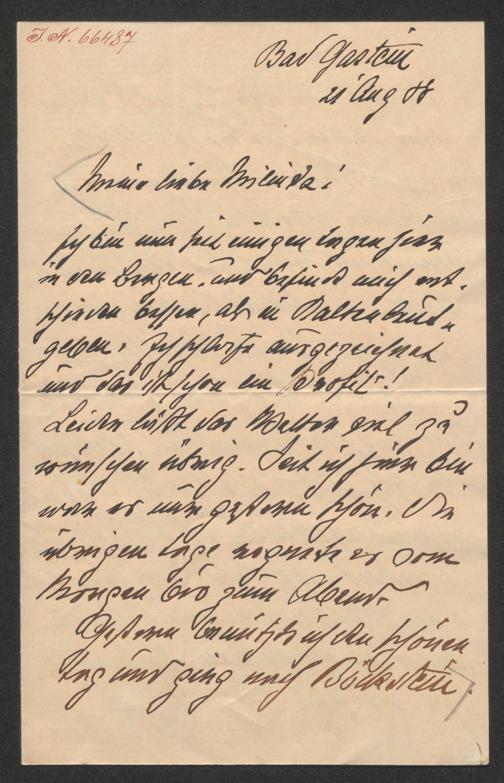 I. N. 66487
Bad Gastein
21 Aug 88
Meine liebe Milinka!
Ich bin nun seit einigen Tagen hier
in den Bergen, und befinde mich ent-
schieden besser, als in Kaltenleut-
geben. Ich schlafe ausgezeichnet
und das ist schon ein Profit!
Leider läßt das Wetter viel zu
wünschen übrig. Seit ich hier bin
war es nur gestern schön. Die
übrigen Tage regnete es vom
Morgen bis zum Abend.
Gestern benützte ich den schönen
Tag und ging nach Böckstein,